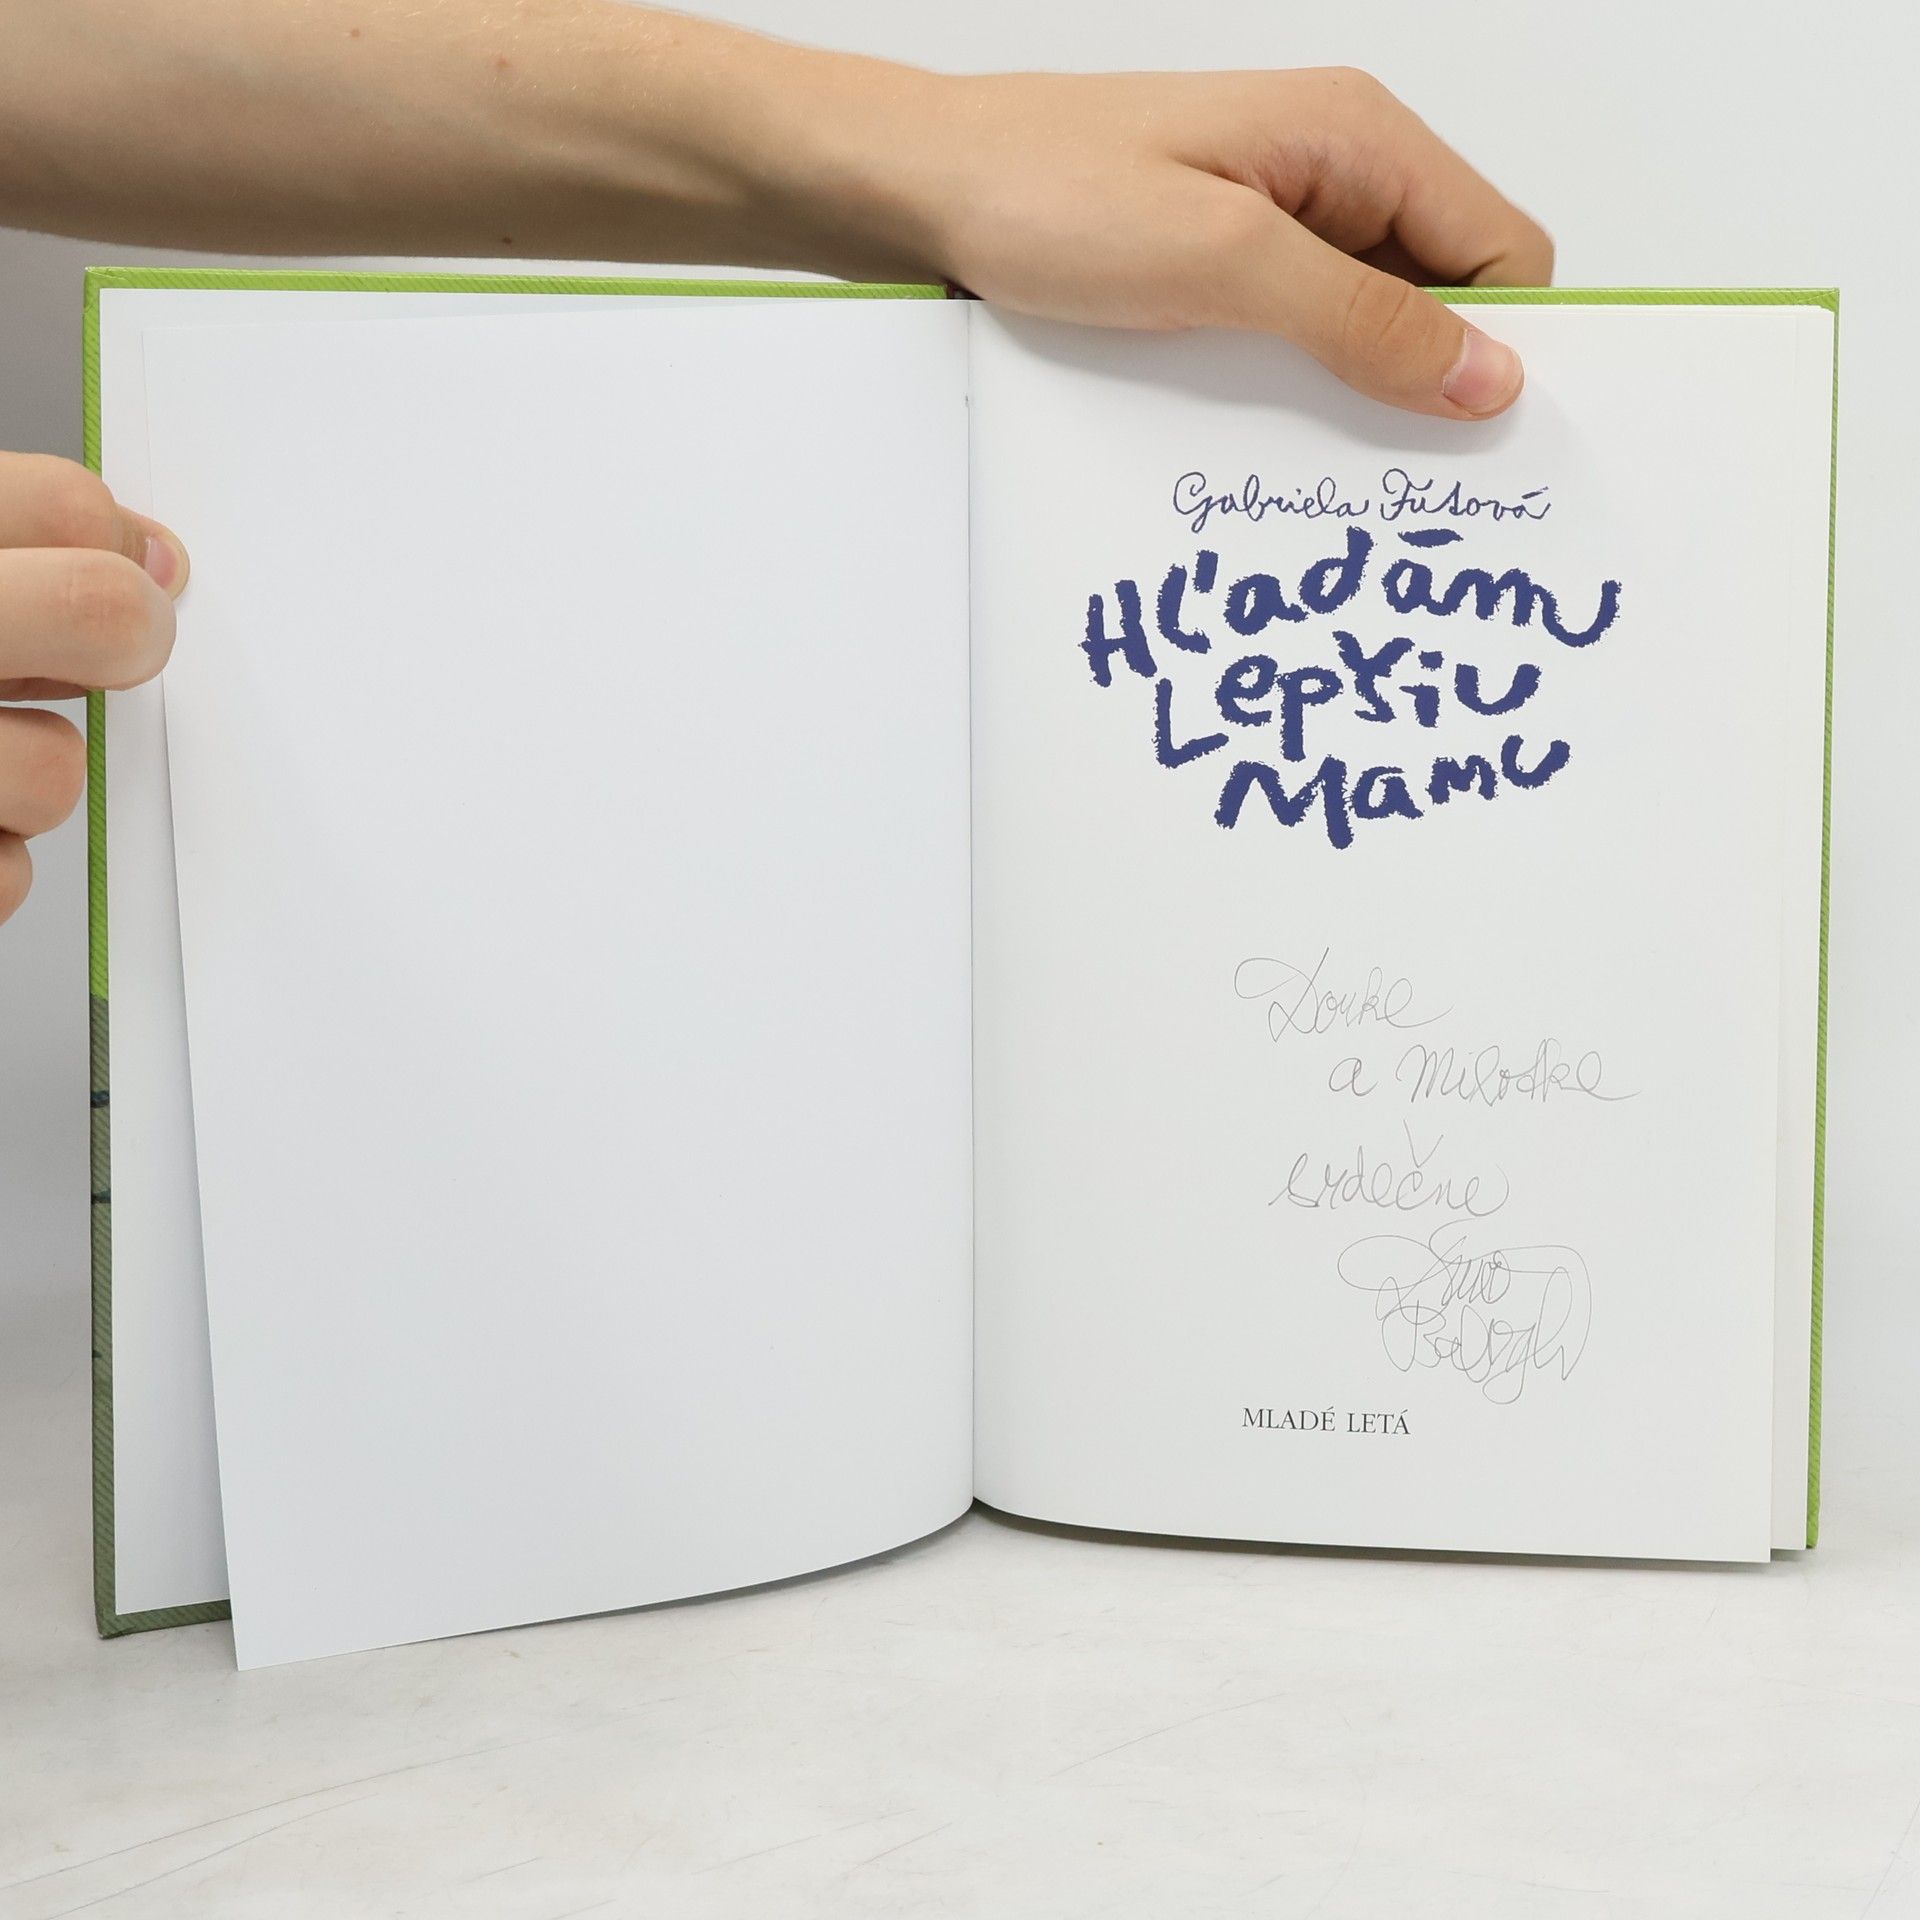 Gabriela Futová
Hľadám
Lepšiu
Mamu
Dorke
a Milotke
srdečne
Balogh
MLADÉ LETÁ